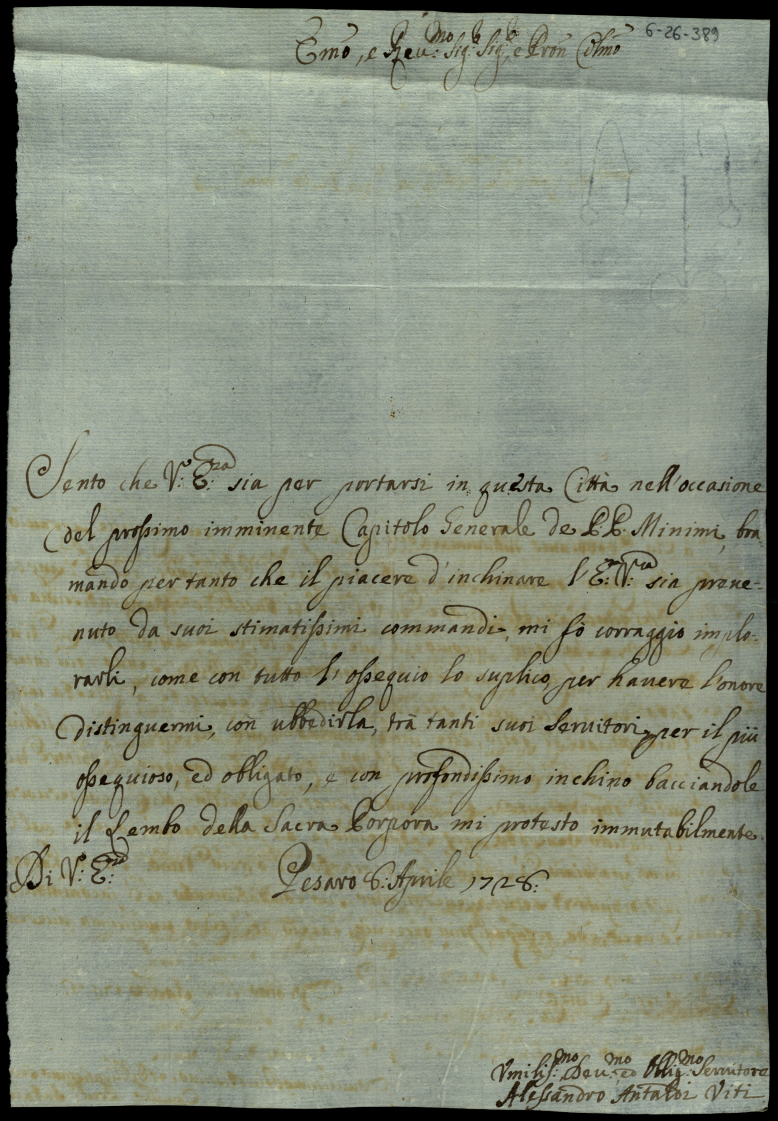 6-26-389
Emo, e Reu:mo Sig:r Sig:r, e Pron Colmo
Sento che V: E:za sia per portarsi in questa Città nell'occasione
del prossimo imminente Capitolo Generale de P.P. Minimi, bra=
mando per tanto che il piacere d'inchinare l'E:a V:ra sia preue=
nuto da suoi stimatissimi commandi, mi fò corraggio implo=
rarli, come con tutto l'ossequio lo suplico, per hauere l'onore
distinguermi, con ubbedirla, trà tanti suoi Seruitori, per il più
ossequioso, ed obligato, e con profondissimo inchino bacciandole
il Lembo della Sacra Porpora mi protesto immutabilmente.
Di V: E:za Pesaro 6: Aprile 1728:
Vmiliss:mo Deu:mo ed Oblig:mo Seruitore
Alessandro Antaldi Viti